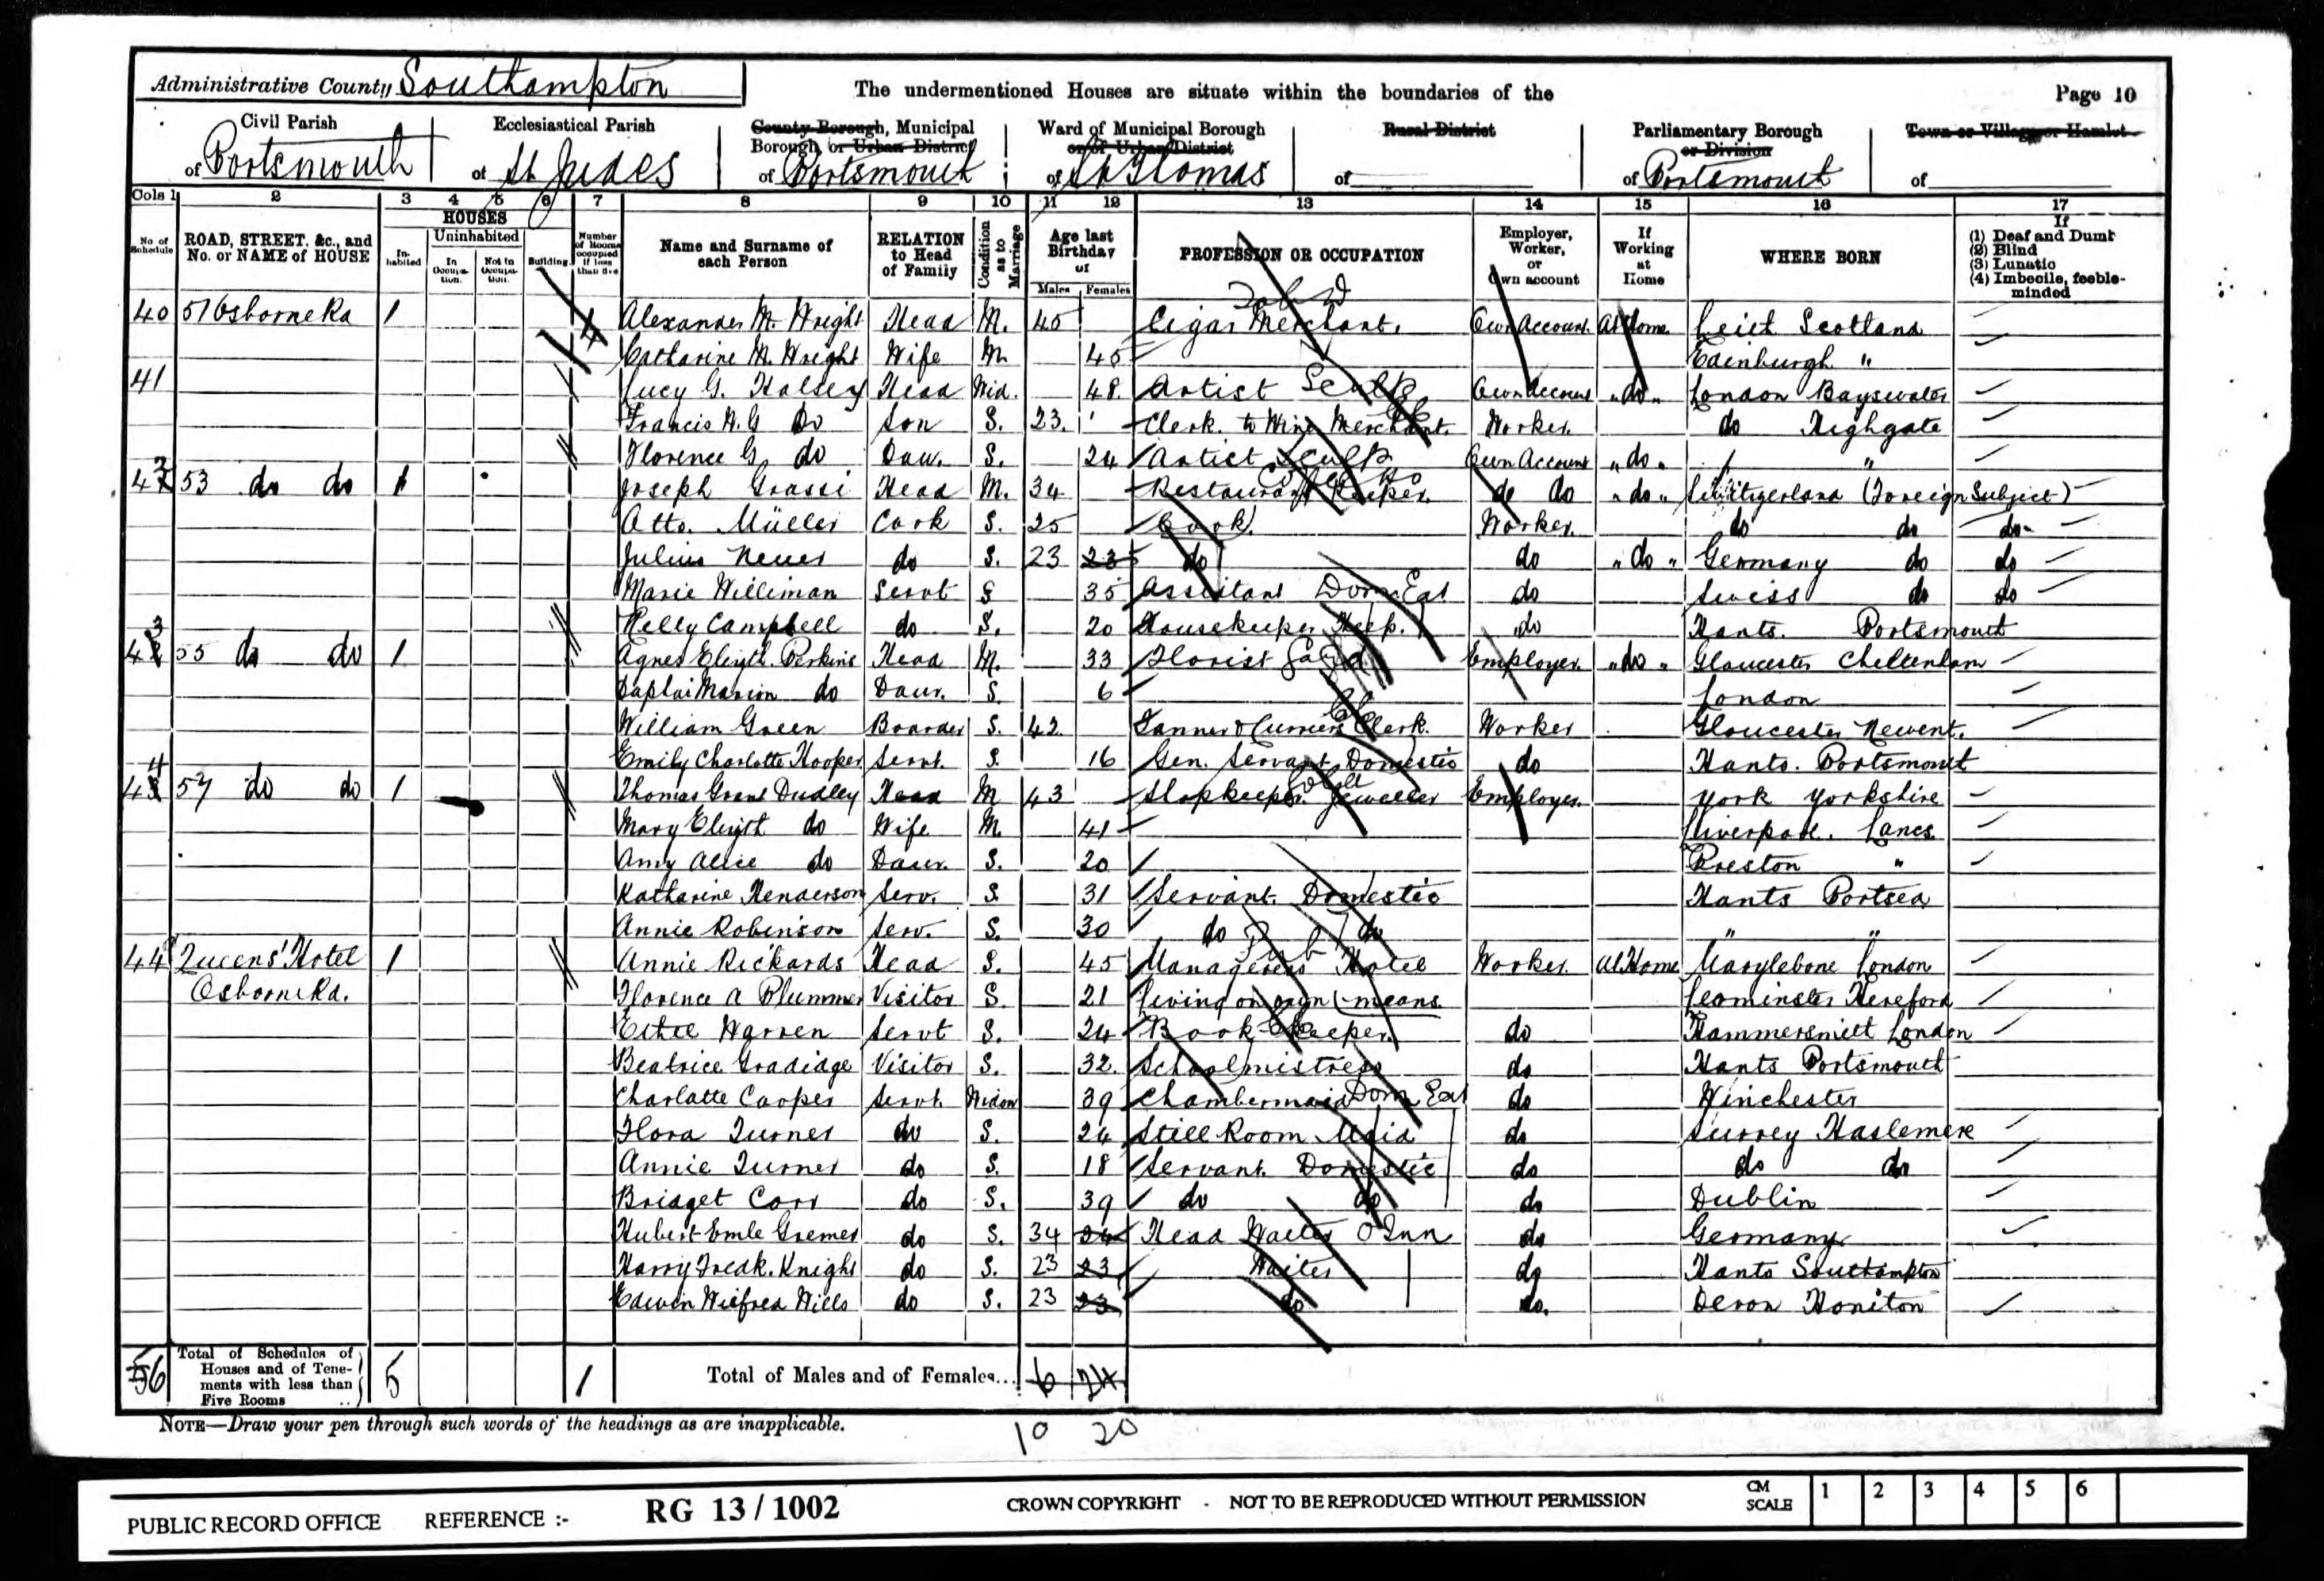 Administrative County Southampton
The undermentioned Houses are situate within the boundaries of the
Page 10
Civil Parish of Portsmouth
Ecclesiastical Parish of St Judes
County Borough, Municipal Borough, or Urban District of Portsmouth
Ward of Municipal Borough or of Urban District of St Thomas
Rural District of
Parliamentary Borough or Division of Portsmouth
Town or Village or Hamlet of
Cols 1 2 3 4 5 6 7 8 9 10 11 12 13 14 15 16 17
No of Schedule
ROAD, STREET, &c., and No. or NAME of HOUSE
HOUSES
Inhabited
Uninhabited
In Occupation.
Not in Occupation.
Building
Number of Rooms occupied if less than five
Name and Surname of each Person
RELATION to Head of Family
Condition as to Marriage
Age last Birthday of
Males Females
PROFESSION OR OCCUPATION
Employer, Worker, or Own account
If Working at Home
WHERE BORN
If
(1) Deaf and Dumb
(2) Blind
(3) Lunatic
(4) Imbecile, feeble-minded
40 51 Osborne Rd 1 4 Alexander M. Wright Head M. 45 Cigar Merchant. Own Account. At Home Leith Scotland
Catharine M. Wright Wife M. 45 Edinburgh "
41 Lucy G. Halsey Head Wid. 48 Artist Sculp Own Account "do" London Bayswater
Francis H. G do Son S. 23. Clerk to Wine Merchant. Worker. do Highgate
Florence G do Dau. S. 24 Artist Sculp Own Account "do" " "
42 53 do do 1 Joseph Grassi Head M. 34 Restaurant Keeper. do do "do" Switzerland (Foreign Subject)
Otto. Müller Cook S. 25 Cook. Worker. do do do
Julius Neuer do S. 23 23 do do "do" Germany do do
Marie Williman Servt S 35 Assistant Dom Eat do Swiss do do
Nelly Campbell do S. 20 Housekeeper Keep. do Hants. Portsmouth
43 55 do do 1 Agnes Elizth. Perkins Head M. 33 Florist Employer. "do" Gloucester Cheltenham
Marion do Daur. S. 6 London
William Green Boarder S. 42. Tanner & Curriers Clerk. Worker Gloucester Newent.
Emily Charlotte Hooper Servt. S. 16 Gen. Servant Domestic do Hants. Portsmouth
44 57 do do 1 Thomas Grant Dudley Head M 43 Shopkeeper. Jeweller Employer. York Yorkshire
Mary Elizth do Wife M 41 Liverpool. Lancs.
Amy Alice do Daur. S. 20 Preston "
Katharine Henderson Serv. S. 31 Servant. Domestic Hants Portsea
Annie Robinson Serv. S. 30 do do " "
44 Queens' Hotel 1 Annie Rickards Head S. 45 Manageress Hotel Worker. At Home Marylebone London
Osborne Rd. Florence A Plummer Visitor S. 21 Living on own means. Leominster Hereford
Ethel Warren Servt S. 24 Book-Keeper. do Hammersmith London
Beatrice Gradidge Visitor S. 32. Schoolmistress do Hants Portsmouth
Charlotte Cooper Servt. Widow 39 Chambermaid Dom Eat do Winchester
Flora Turner do S. 24 Still Room Maid do Surrey Haslemere
Annie Turner do S. 18 Servant Domestic do do do
Bridget Corr do S. 39 do do do Dublin
Hubert Emle Gremer do S. 34 34 Head Waiter Inn do Germany
Harry Fredk. Knight do S. 23 23 Waiter do Hants Southampton
Edwin Wilfred Wills do S. 23 23 do do. Devon Honiton
56 Total of Schedules of Houses and of Tenements with less than Five Rooms 5 1 Total of Males and of Females... 6 24
NOTE—Draw your pen through such words of the headings as are inapplicable.
10 20
PUBLIC RECORD OFFICE REFERENCE :- RG 13 / 1002 CROWN COPYRIGHT - NOT TO BE REPRODUCED WITHOUT PERMISSION CM SCALE 1 2 3 4 5 6